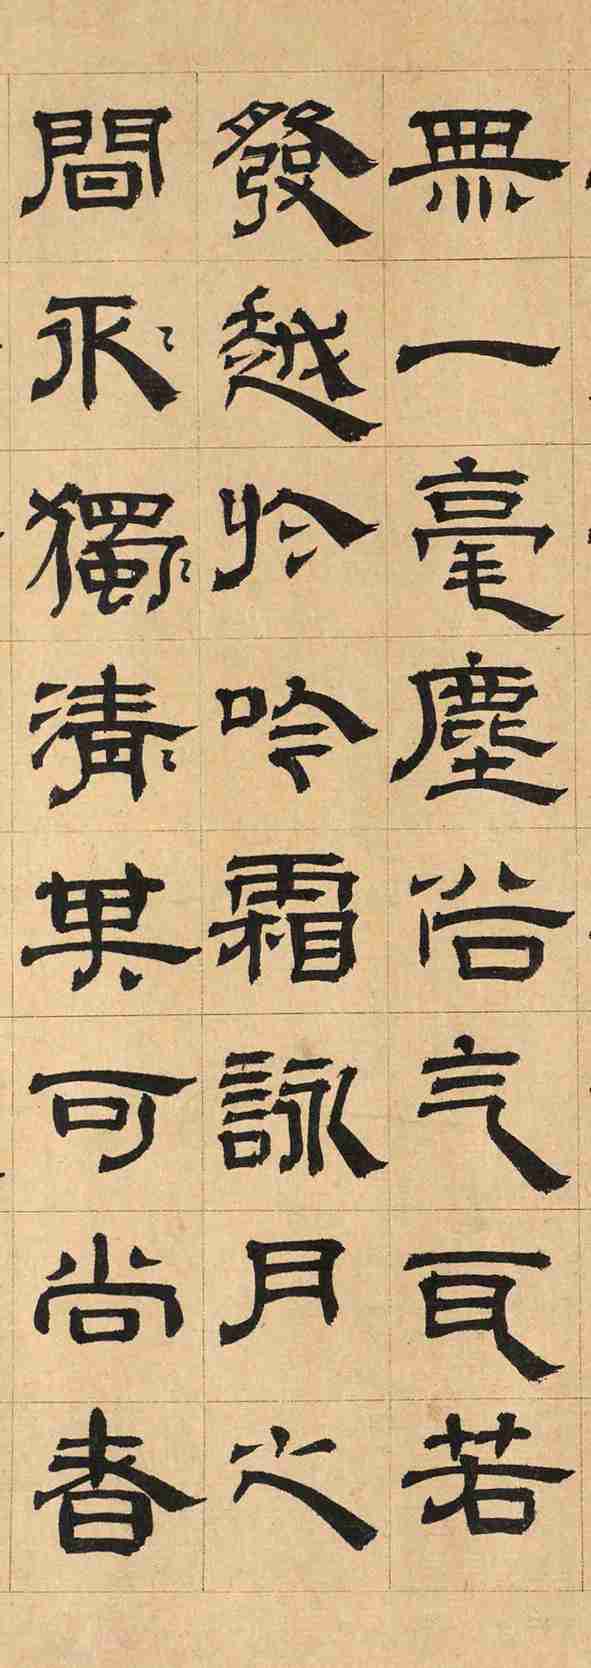 無一毫塵俗气若
發越於吟霜詠月之
間不獨清其可尚者